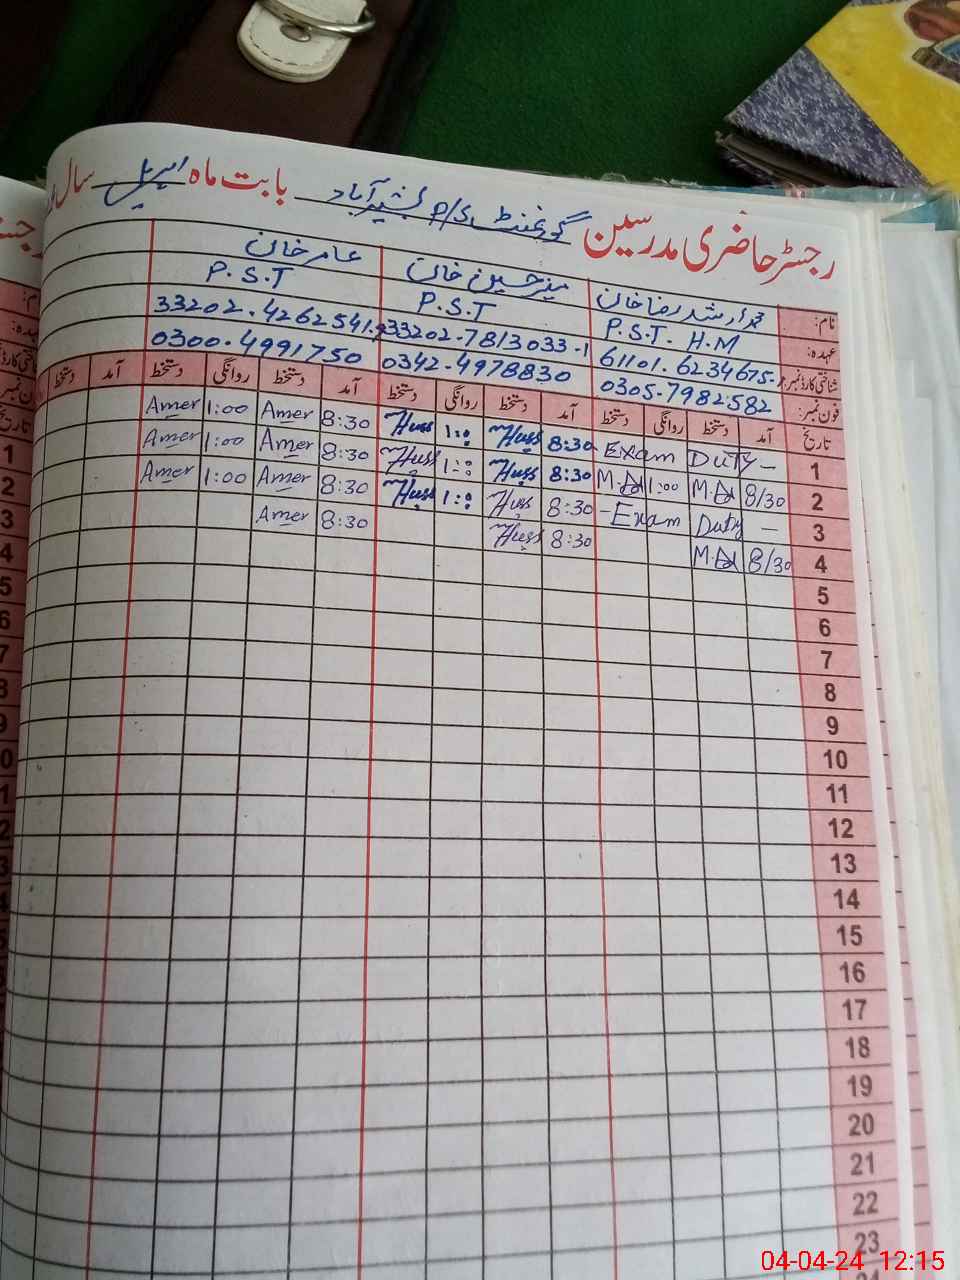 رجسٹر حاضری مدرسین گورنمنٹ P/S بشیر آباد بابت ماہ اپریل سال
نام: محمد ارشد رضا خان منیر حسین خان عامر خان
عہدہ: P.S.T. H.M P.S.T P.S.T
شناختی کارڈ نمبر: 61101.6234675- 33202.7813033-1 33202.4262541.9
فون نمبر: 0305-7982582 0342-4978830 0300-4991750
تاریخ آمد دستخط روانگی دستخط آمد دستخط روانگی دستخط آمد دستخط روانگی دستخط آمد دستخط
1 Exam Duty - 8:30 Huss 1:0 Huss 8:30 Amer 1:00 Amer
2 8/30 M.A 1:00 M.A 8:30 Huss 1:0 Huss 8:30 Amer 1:00 Amer
3 - Exam Duty - 8:30 Huss 1:0 Huss 8:30 Amer 1:00 Amer
4 8/30 M.A 8:30 Huss 8:30 Amer
5
6
7
8
9
10
11
12
13
14
15
16
17
18
19
20
21
22
23
04-04-24 12:15